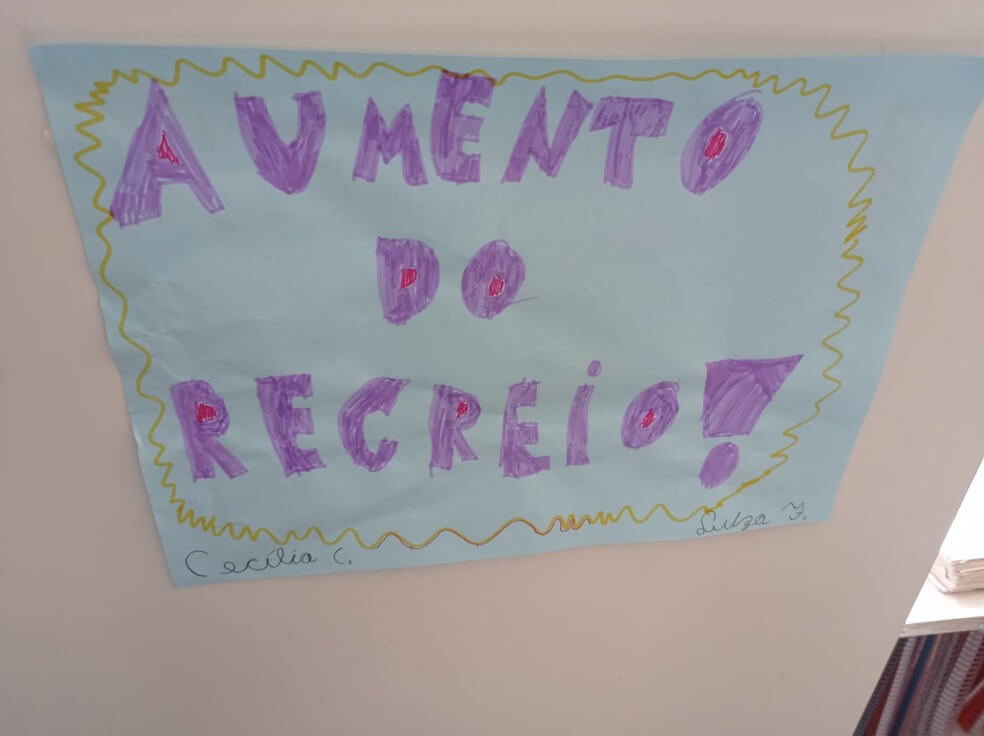 AUMENTO
DO
RECREiO!
Cecília C.
Luiza F.